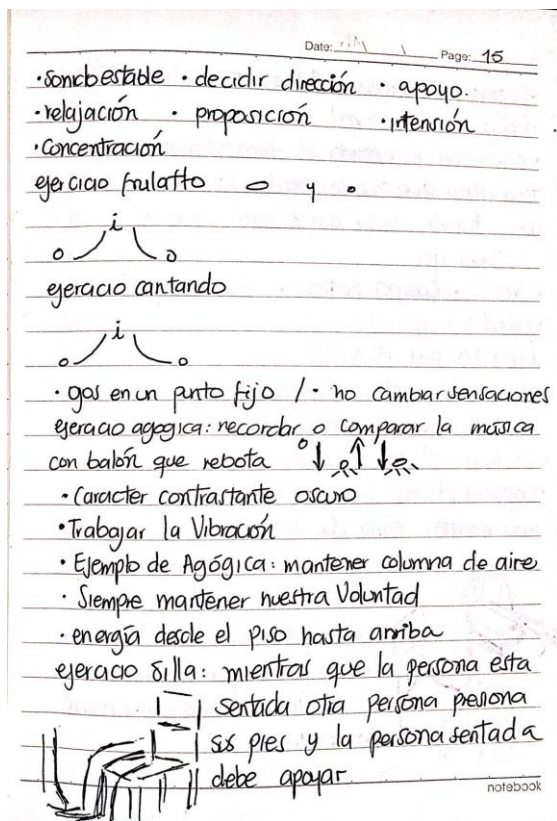 Date: \ \ Page: 15
· sonido estable · decidir dirección · apoyo.
· relajación · proposición · intensión
· concentración
ejercicio frulatto o y o
i
o o
ejercicio cantando
i
o o
· gos en un punto fijo / · no cambiar sensaciones
ejeracio agogica: recordar o comparar la música
con balón que rebota
· Caracter contrastante oscuro
· Trabajar la Vibración
· Ejemplo de Agógica: mantener columna de aire
· Siempre mantener nuestra Voluntad
· energía desde el piso hasta arriba
ejeracio silla: mientras que la persona esta
sentada otra persona presiona
sus pies y la persona sentada
debe apoyar
notebook